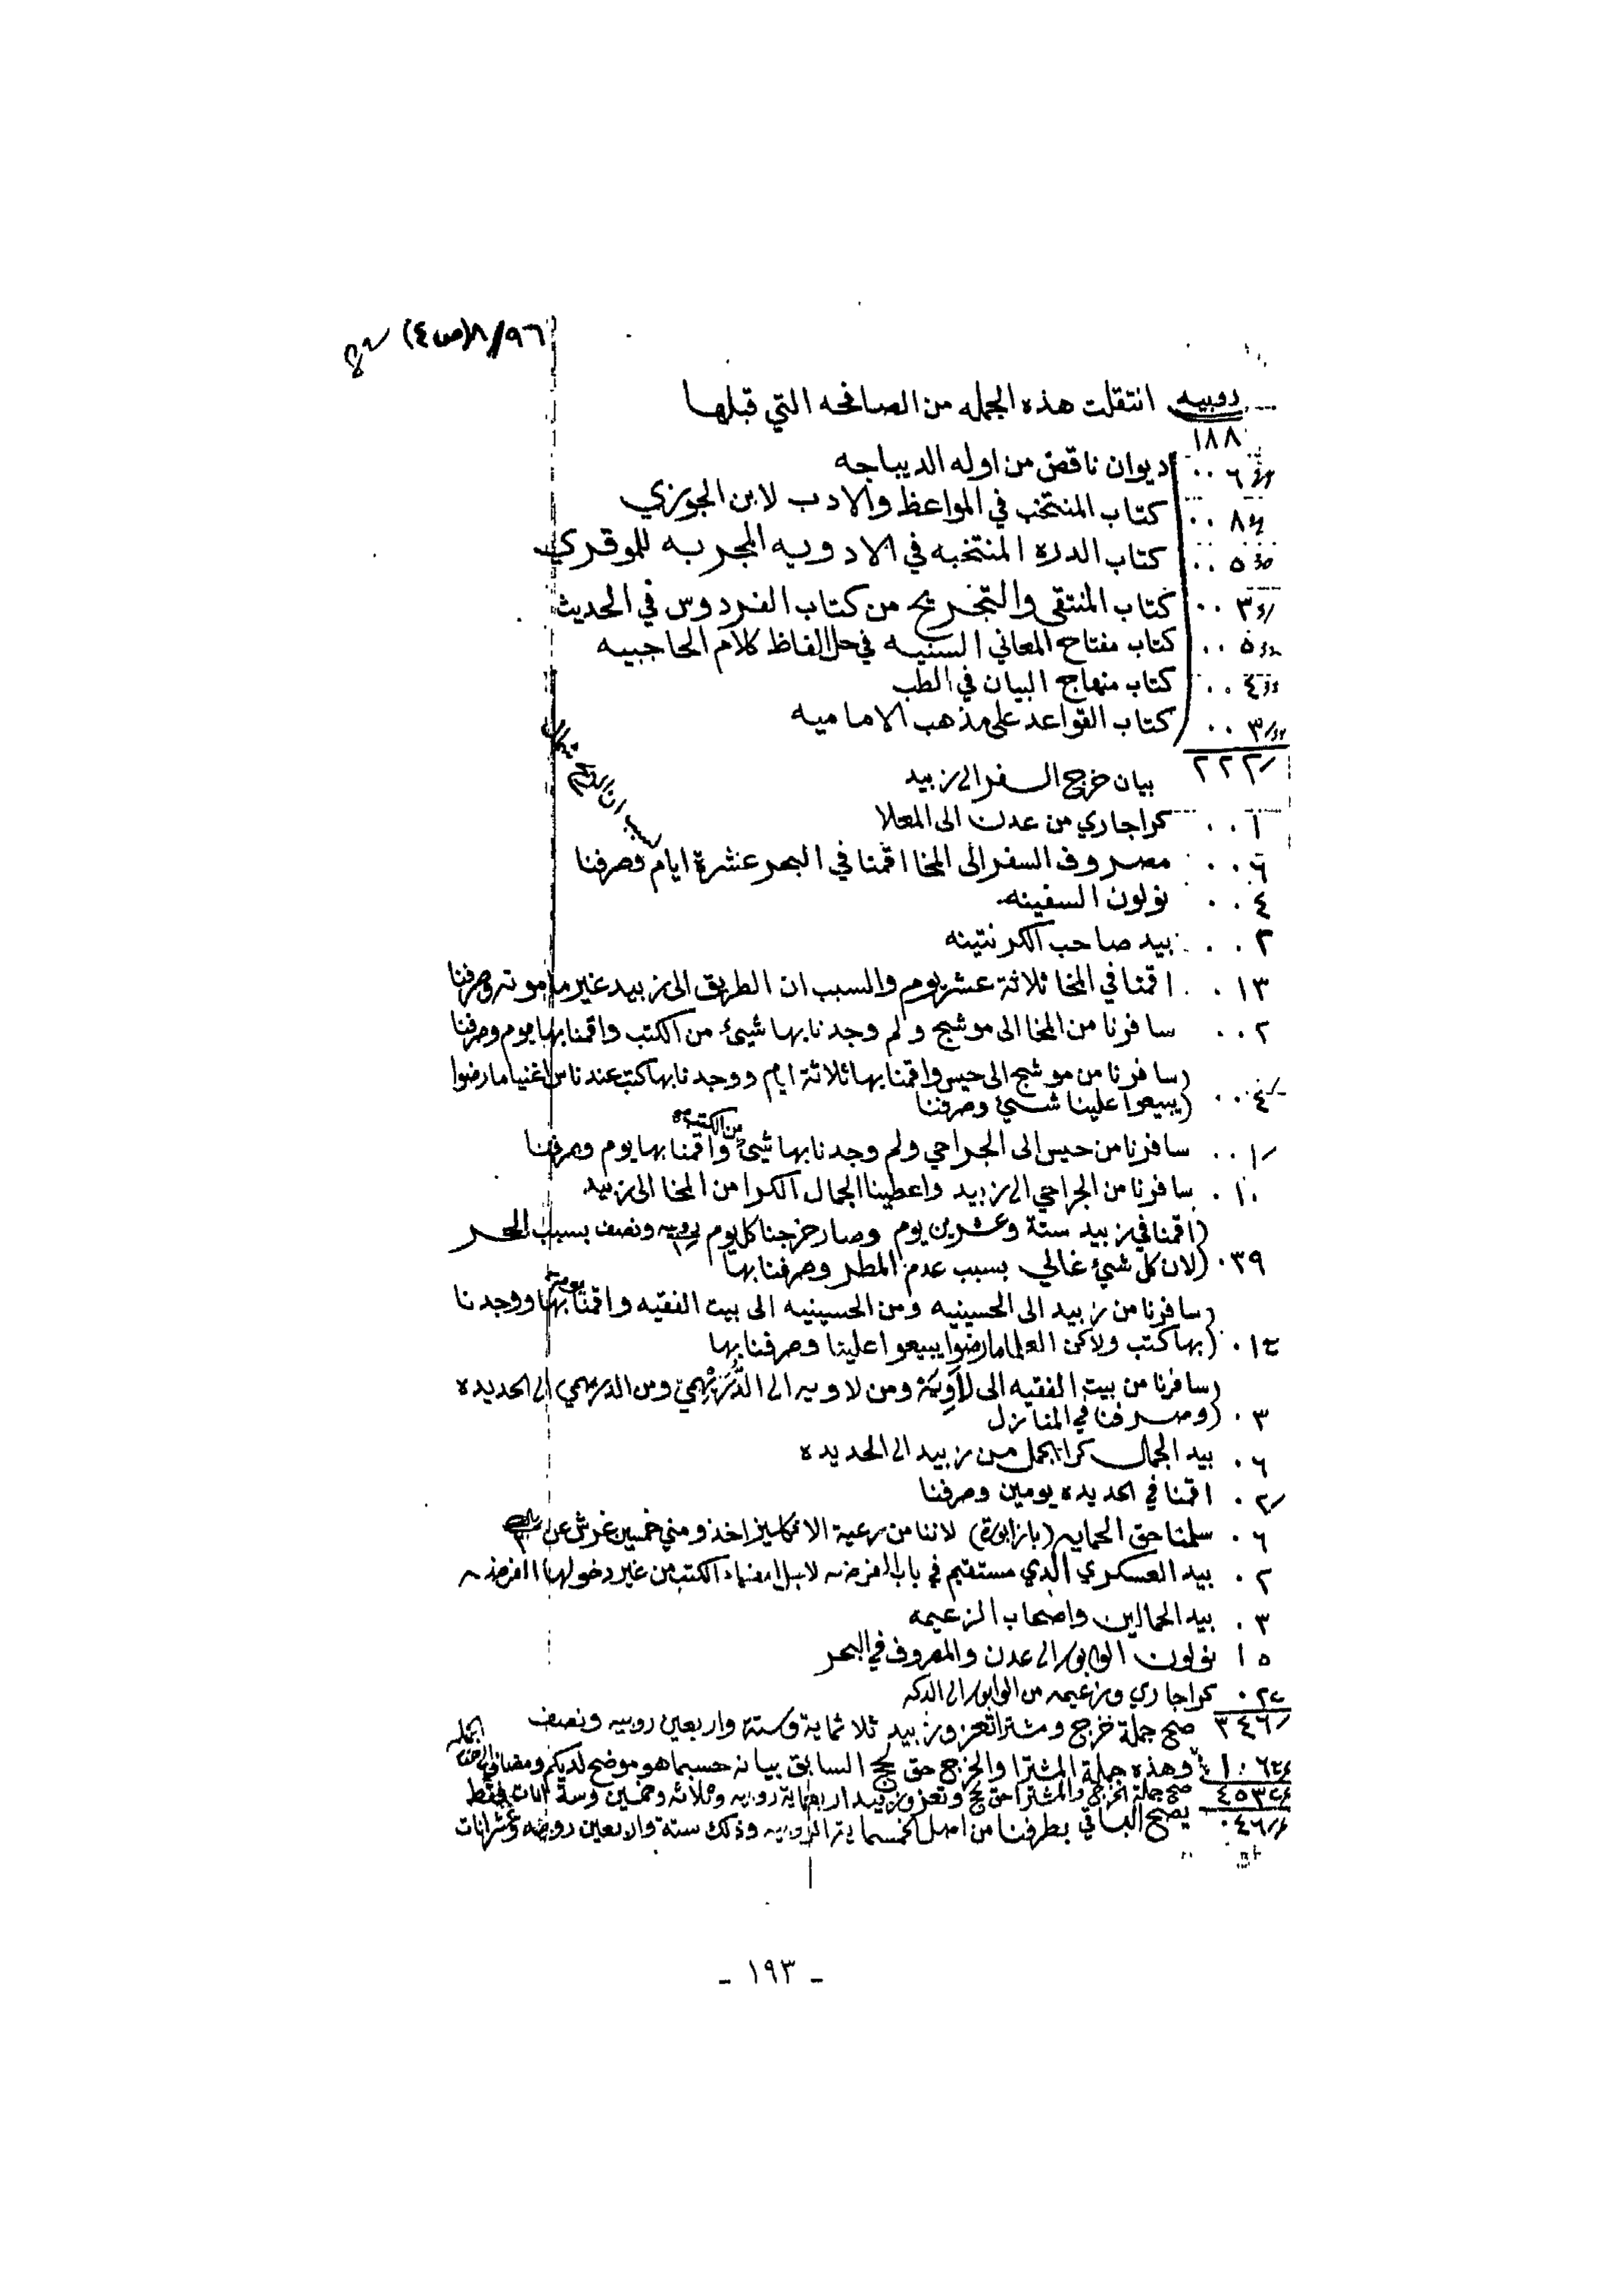 ٨/٩٦ (ص٤)
روبيه انتقلت هذه الجمله من الصافحه التي قبلها
١٨٨
٦ ٠٠ ديوان ناقص من اوله الديباجه
٨ ٠٠ كتاب المنتخب في المواعظ والادب لابن الجوزي
٥ ٠٠ كتاب الدره المنتخبه في الادويه المجربه للموقري
٣ ٠٠ كتاب المنتقى والتخريج من كتاب الفردوس في الحديث
٥ ٠٠ كتاب مفتاح المعاني السنيه في حل الفاظ كلام الحاجبيه
٤ ٠٠ كتاب منهاج البيان في الطب
٣ ٠٠ كتاب القواعد على مذهب الاماميه
٢٢٢/
بيان خرج السفر الى زبيد
١ ٠٠ كرا جاري من عدن الى المعلا
٦ ٠٠ مصروف السفر الى المخا اقمنا في البحر عشرة ايام وصرفنا
بسبب ان الريح شمال
٤ ٠٠ نولون السفينه
٢ ٠٠ بيد صاحب الكرنتينه
١٣ ٠ اقمنا في المخا ثلاثة عشر يوم والسبب ان الطريق الى زبيد غير مامونه وصرفنا
٢ ٠٠ سافرنا من المخا الى موشج ولم وجدنا بها شيئ من الكتب واقمنا بها يوم وصرفنا
سافرنا من موشج الى حيس واقمنا بها ثلاثة ايام ووجدنا بها كتب عند ناس اغنيا ما رضوا
٤/ ٠٠ يبيعوا علينا شيئ وصرفنا
١/ ٠٠ سافرنا من حيس الى الجراحي ولم وجدنا بها شيئ من الكتب واقمنا بها يوم وصرفنا
١٠ ٠ سافرنا من الجراحي الى زبيد واعطينا الجمال الكرا من المخا الى زبيد
(اقمنا في زبيد ستة وعشرين يوم وصار خرجنا كل يوم روبيه ونصف بسبب الحر
٠٣٩ (لان كل شيئ غالي بسبب عدم المطر وصرفنا بها
سافرنا من زبيد الى الحسينيه ومن الحسينيه الى بيت الفقيه واقمنا بها يومين ووجدنا
٠١ (بها كتب ولاكن العلما ما رضوا يبيعوا علينا وصرفنا بها
سافرنا من بيت الفقيه الى لاويه ومن لاويه الى الدريهمي ومن الدريهمي الى الحديده
٣ ٠ (وصرفنا في المنازل
٦ ٠ بيد الجمال كرا الجمل من زبيد الى الحديده
٢/ ٠ اقمنا في الحديده يومين وصرفنا
٦ ٠ سلمنا حق الحمايه (بازابورة) لاننا من رعية الانكليز اخذو مني خمسين غرش عن
٢ ٠ بيد العسكري الذي مستقيم في باب الفرضه لاجل امضاء الكتب من غير دخولها الفرضه
٣ ٠ بيد الحمالين واصحاب الزعيمه
١٥ نولون الوابور الى عدن والمصروف في البحر
٢ ٠ كرا جاري وزعيمه من الوابور الى الدكه
٣٤٦/ صح جملة خرج ومشترا تعز وزبيد ثلاثماية وستة واربعين روبيه ونصف
١٠٦ وهذه جملة المشترا والخرج حق لحج السابق بيانه حسبما هو موضح لديكم ومضاف الى هذه الجمله
٤٥٣ صح جملة الخرج والمشترا حق لحج وتعز وزبيد اربعماية روبيه وثلاثه وخمسين وستة انات فقط
٠٤٦ يصح الباقي بطرفنا من اصل الخمسماية الروبيه وذلك ستة واربعين روبيه وعشر انات
- ١٩٣ -